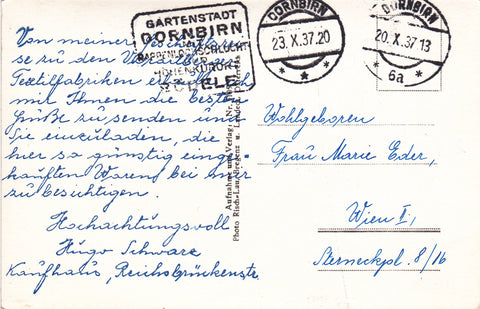 GARTENSTADT
DORNBIRN
RAPPENLOCHSCHLUCHT
HÖHENKURORT
BÖDELE
DORNBIRN
23.X.37.20
DORNBIRN
20.X.37 13
6a
Von meiner
se zu den
Textilfabriken
mir Ihnen die besten
Grüße zu senden und
Sie einzuladen, die
hier so günstig einge
kauften Waren bei mir
zu besichtigen.
Hochachtungsvoll
Hugo Schwarz
Kaufhaus, Reichsbrückenstr.
Aufnahme und Verlag
Photo Risch-Lau, Bregenz u.
Wohlgeboren
Frau Marie Eder,
Wien I.,
Sterneckpl. 8/16